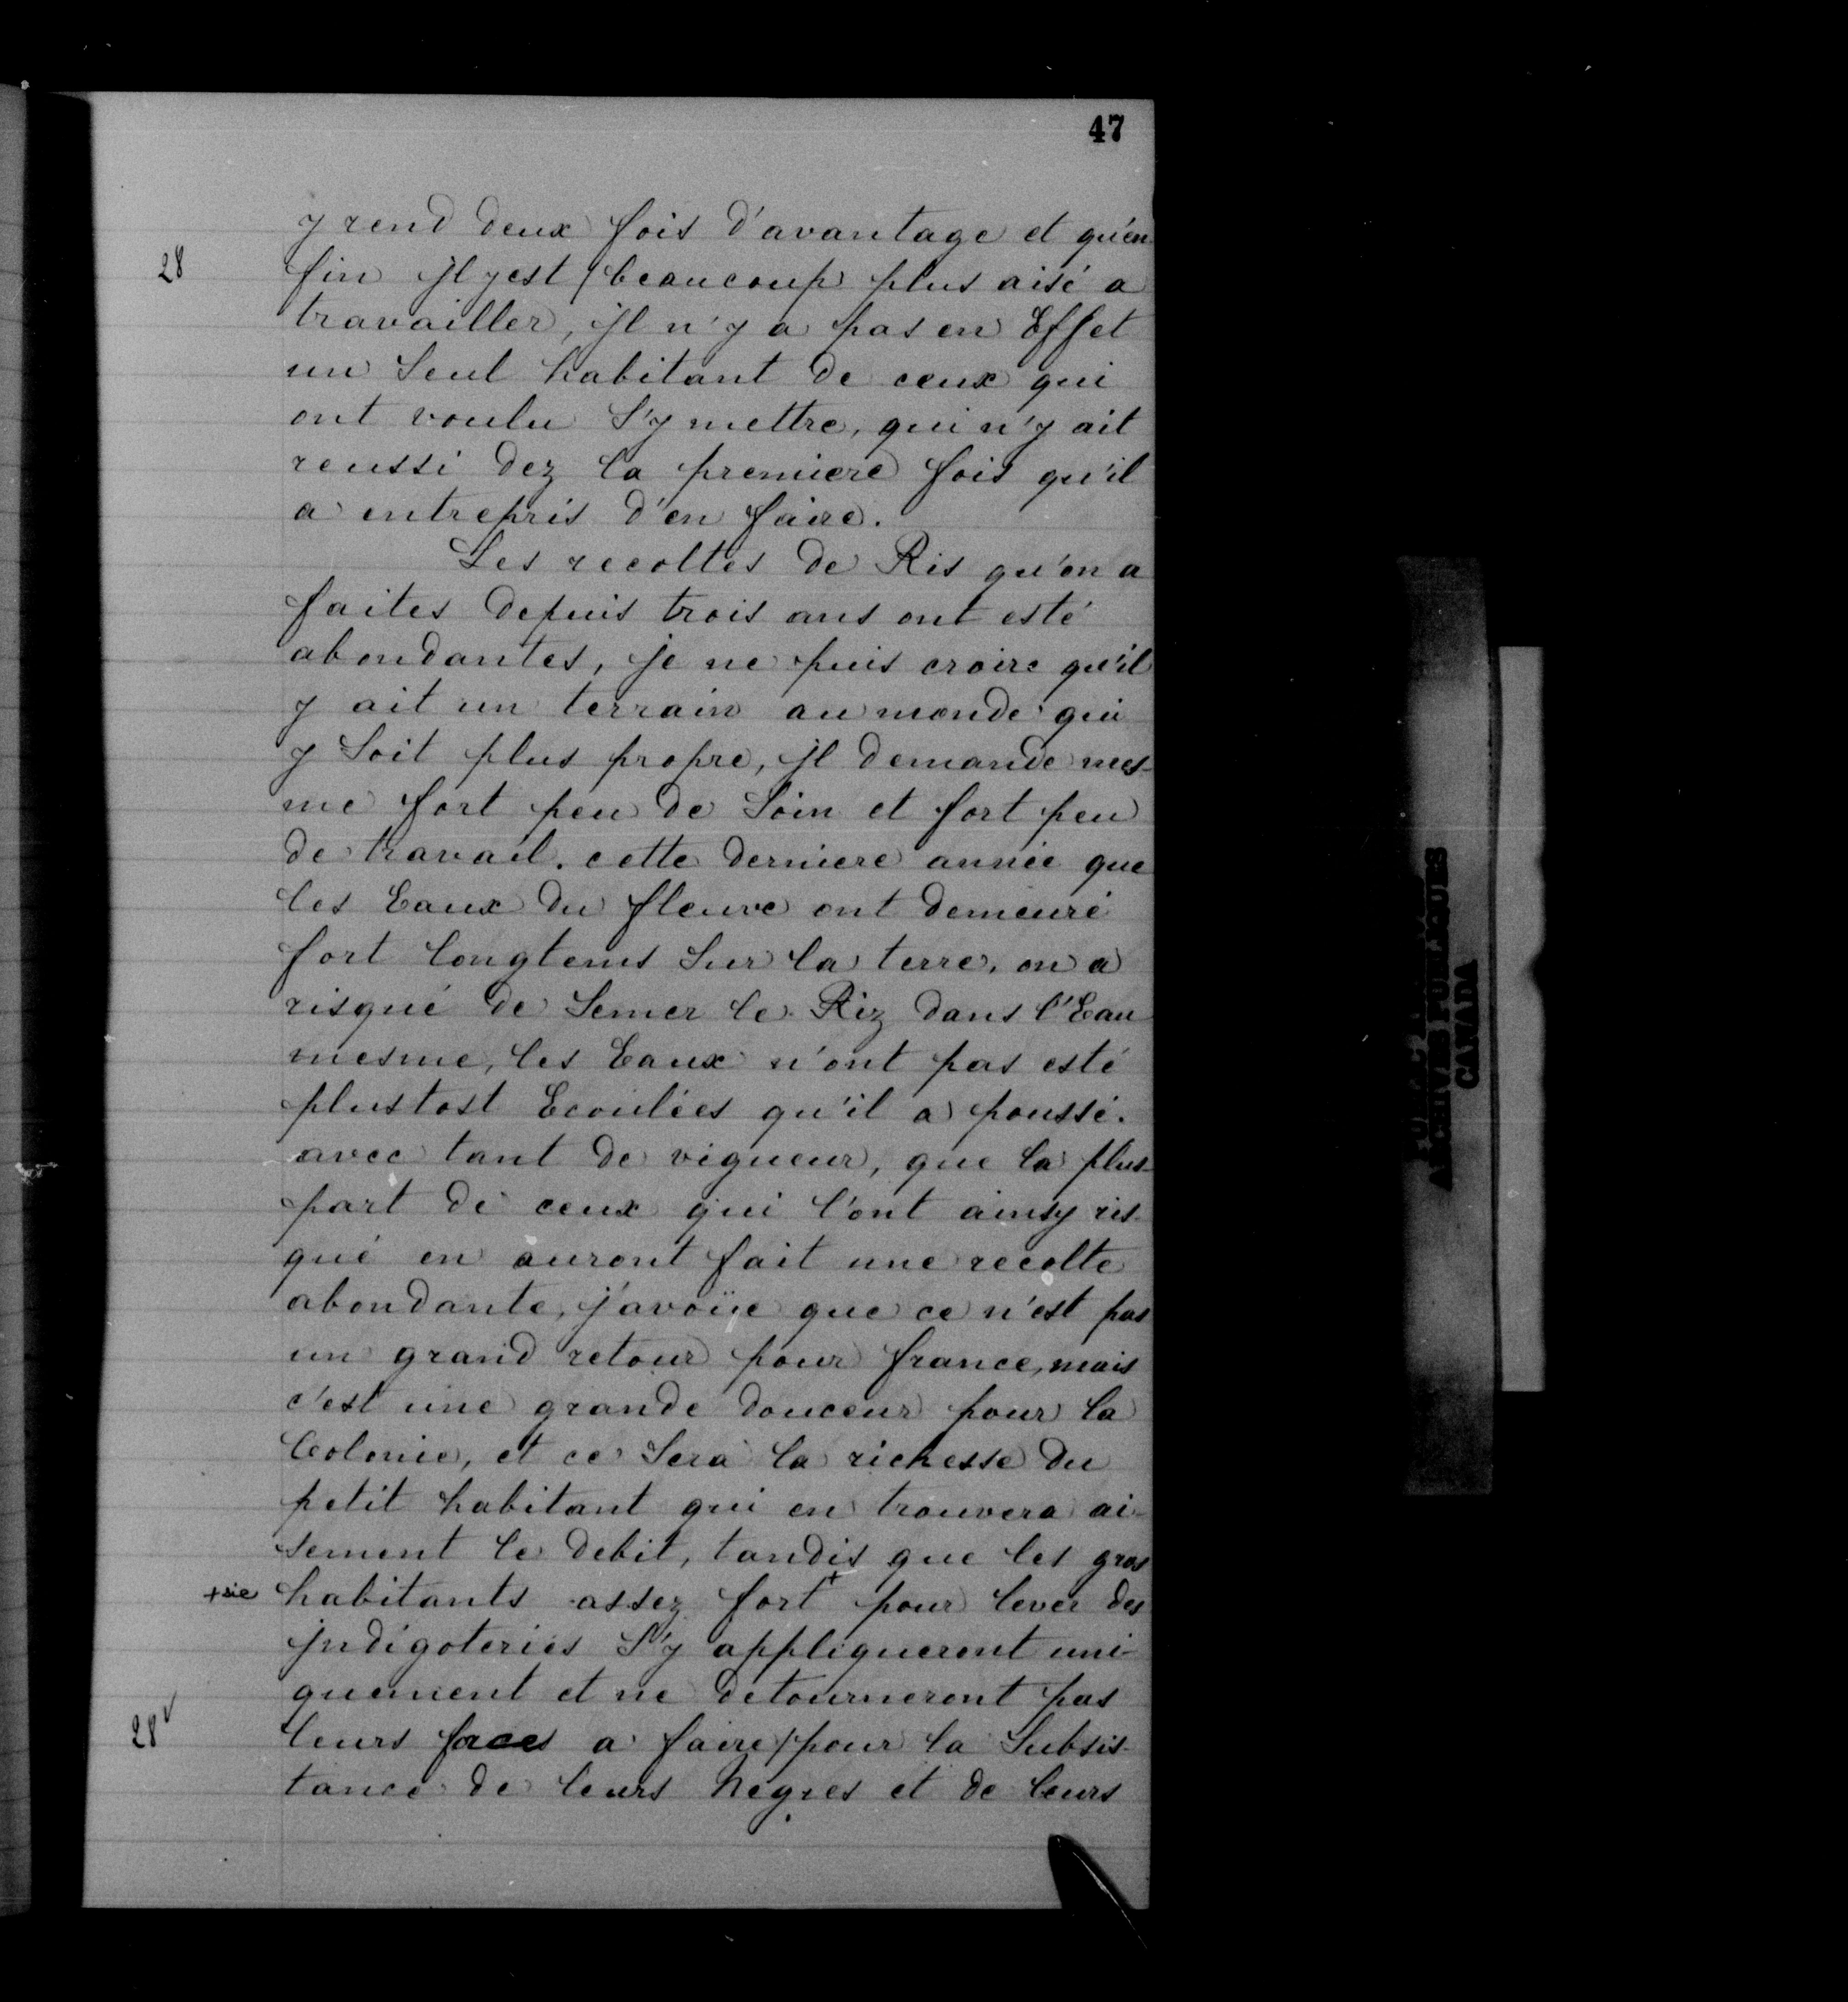 47
y rend deux fois d'avantage et qu'en
28
fin jl y est / beaucoup plus aisé a
travailler, jl n'y a pas en Effet
un Seul habitant de ceux qui
ont voulu S'y mettre, qui n'y ait
reussi dez la premiere fois qu'il
a entrepris d'en faire.
Les recoltes de Ris qu'on a
faites depuis trois ans ont esté
abondantes, je ne puis croire qu'il
y ait un terrain au monde qui
y Soit plus propre, jl demande mes-
me fort peu de Soin et fort peu
de travail. cette derniere année que
les Eaux du fleuve ont demeuré
fort longtems Sur la terre, on a
risqué de Semer le Riz dans l'Eau
mesme, les Eaux n'ont pas esté
plustost Ecoulées qu'il a poussé.
avec tant de vigueur, que la plus-
part de ceux qui l'ont ainsy ris-
qué en auront fait une recolte
abondante, j'avoüe que ce n'est pas
un grand retour pour france, mais
c'est une grande douceur pour la
Colonie, et ce Sera la richesse du
petit habitant qui en trouvera ai-
sement le debit, tandis que les gros
+sic habitants assez fort+ pour lever des
jndigoteries S'y appliqueront uni-
quement et ne detourneront pas
28v
leurs forces a faire / pour la Subsis-
tance de leurs Negres et de leurs
ARCHIVES PUBLIQUES
CANADA